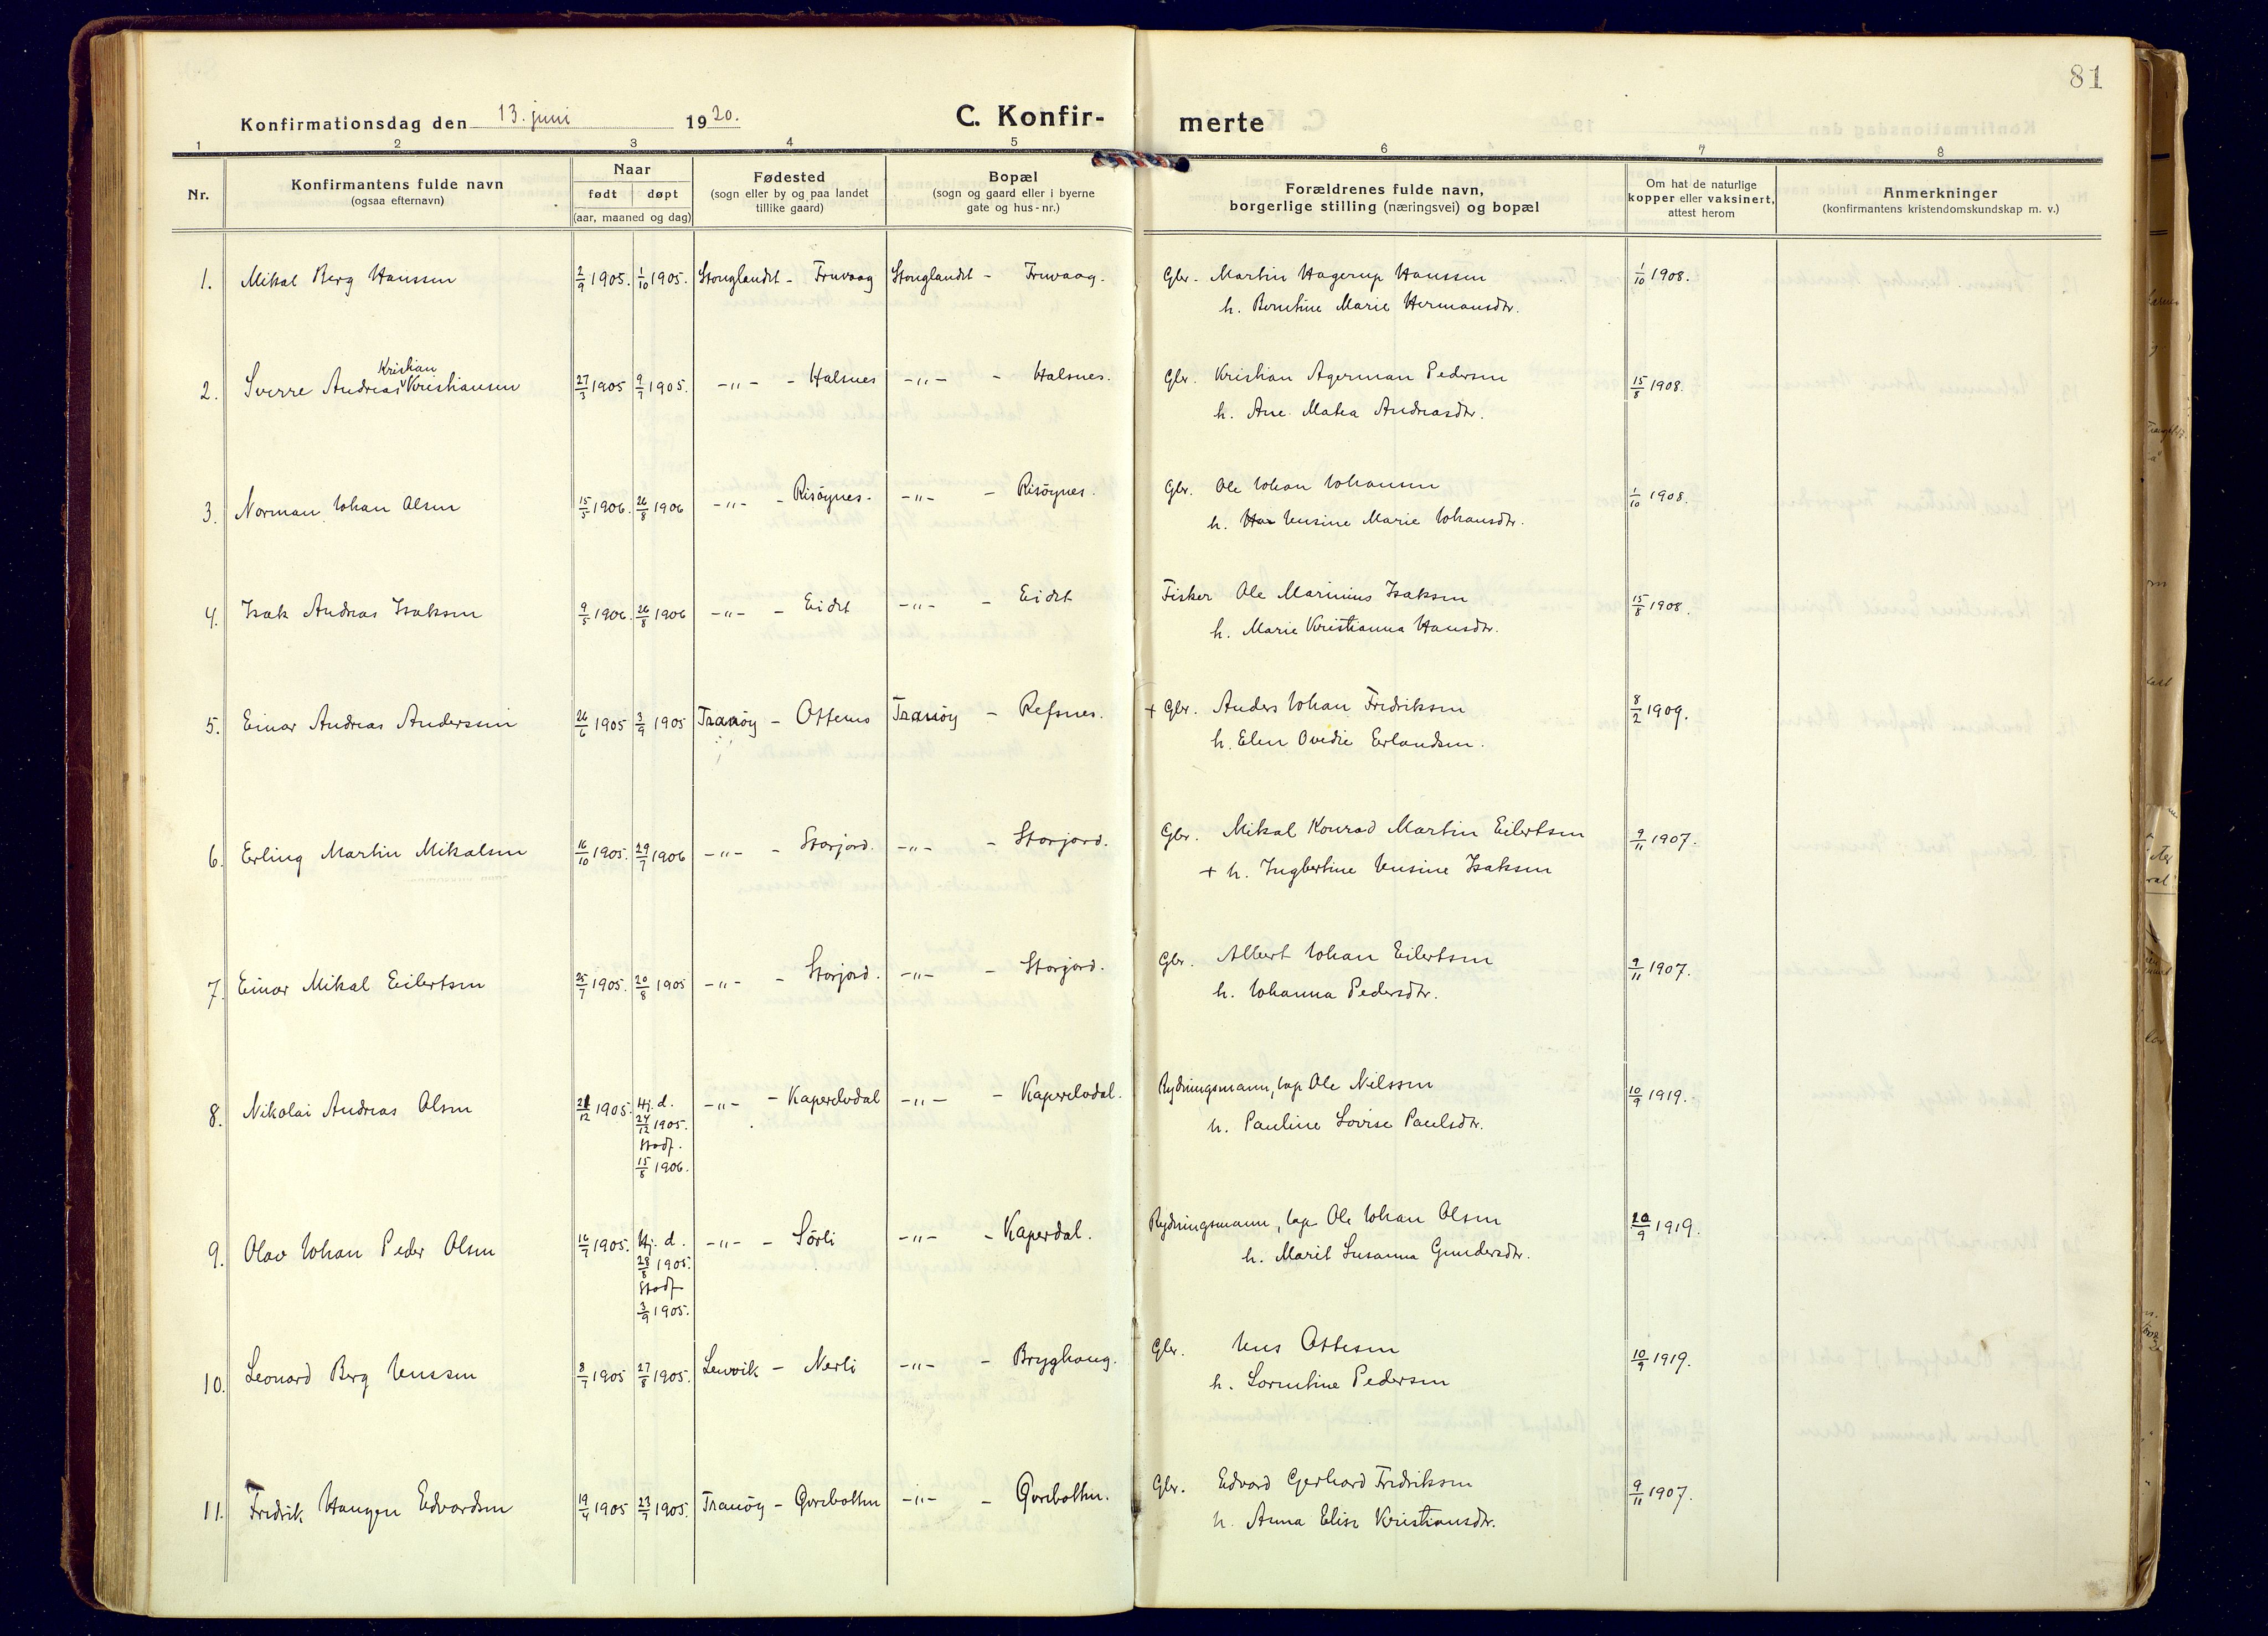 81
Konfirmationsdag den 13. juni 1920.
C. Konfir-
merte
1 2 3 4 5 6 7 8
Nr.
Konfirmantens fulde navn
(ogsaa efternavn)
Naar
født døpt
(aar, maaned og dag)
Fødested
(sogn eller by og paa landet
tillike gaard)
Bopæl
(sogn og gaard eller i byerne
gate og hus-nr.)
Forældrenes fulde navn,
borgerlige stilling (næringsvei) og bopæl
Om hat de naturlige
kopper eller vaksinert,
attest herom
Anmerkninger
(konfirmantens kristendomskundskap m. v.)
1. Mikal Berg Hanssen 2/9 1905. 1/10 1905. Stonglandet - Fruvaag Stonglandet - Fruvaag. Gbr. Martin Hagerup Hanssen 1/10 1908.
h. Berntine Marie Hermansdtr.
Kristian
2. Sverre Andreas Kristiansen 27/3 1905 9/7 1905. -„- - Halsnes -„- - Halsnes. Gbr. Kristian Agerman Pedersen 15/8 1908.
h. Ane Matea Andreasdtr.
3. Norman Johan Olsen 15/5 1906. 26/8 1906 -„- - Risöynes. -„- - Risöynes. Gbr. Ole Johan Johansen 1/10 1908.
h. Jensine Marie Johansdtr.
4. Isak Andreas Isaksen 9/5 1906. 26/8 1906 -„- - Eidet -„- - Eidet Fisker Ole Marinius Isaksen 15/8 1908.
h. Marie Kristianna Hansdtr.
5. Einar Andreas Anderssen 26/6 1905 3/9 1905 Tranöy - Ottenes Tranöy - Refsnes. + Gbr. Anders Johan Fredriksen 8/2 1909.
h. Elen Ovedie Erlandsen.
6. Erling Martin Mikalsen 16/10 1905. 29/7 1906 -„- - Storjord. -„- - Storjord. Gbr. Mikal Konrad Martin Eilertsen 9/11 1907.
+ h. Ingbertine Jensine Isaksen
7. Einar Mikal Eilertsen 25/7 1905. 20/8 1905 -„- - Storjord. -„- - Storjord. Gbr. Albert Johan Eilertsen 9/11 1907.
h. Johanna Pedersdtr.
8. Nikolai Andreas Olsen 21/12 1905. Hj. d. -„- - Kaperelvdal -„- - Kaperelvdal. Rydningsmann, lap Ole Nilssen 10/9 1919.
24/12 1905.
stadf.
15/8 1906.
h. Pauline Lovise Paulsdtr.
9. Olav Johan Peder Olsen 16/7 1905. Hj. d. -„- - Sörli -„- - Kaperdal. Rydningsmann, lap Ole Johan Olsen 20/9 1919.
28/8 1905.
stadf
3/9 1905.
h. Marit Susanna Gundersdtr.
10. Leonard Berg Jenssen 8/7 1905 27/8 1905. Lenvik - Nerli -„- - Bryghaug. Gbr. Jens Ottesen 10/9 1919.
h. Lorentine Pedersen
11. Fredrik Haugen Edvardsen 19/4 1905 23/7 1905. Tranöy - Gjovebotten -„- - Gjovebotten. Gbr. Edvard Gerhard Fredriksen 9/11 1907.
h. Anna Elise Kristiansdtr.